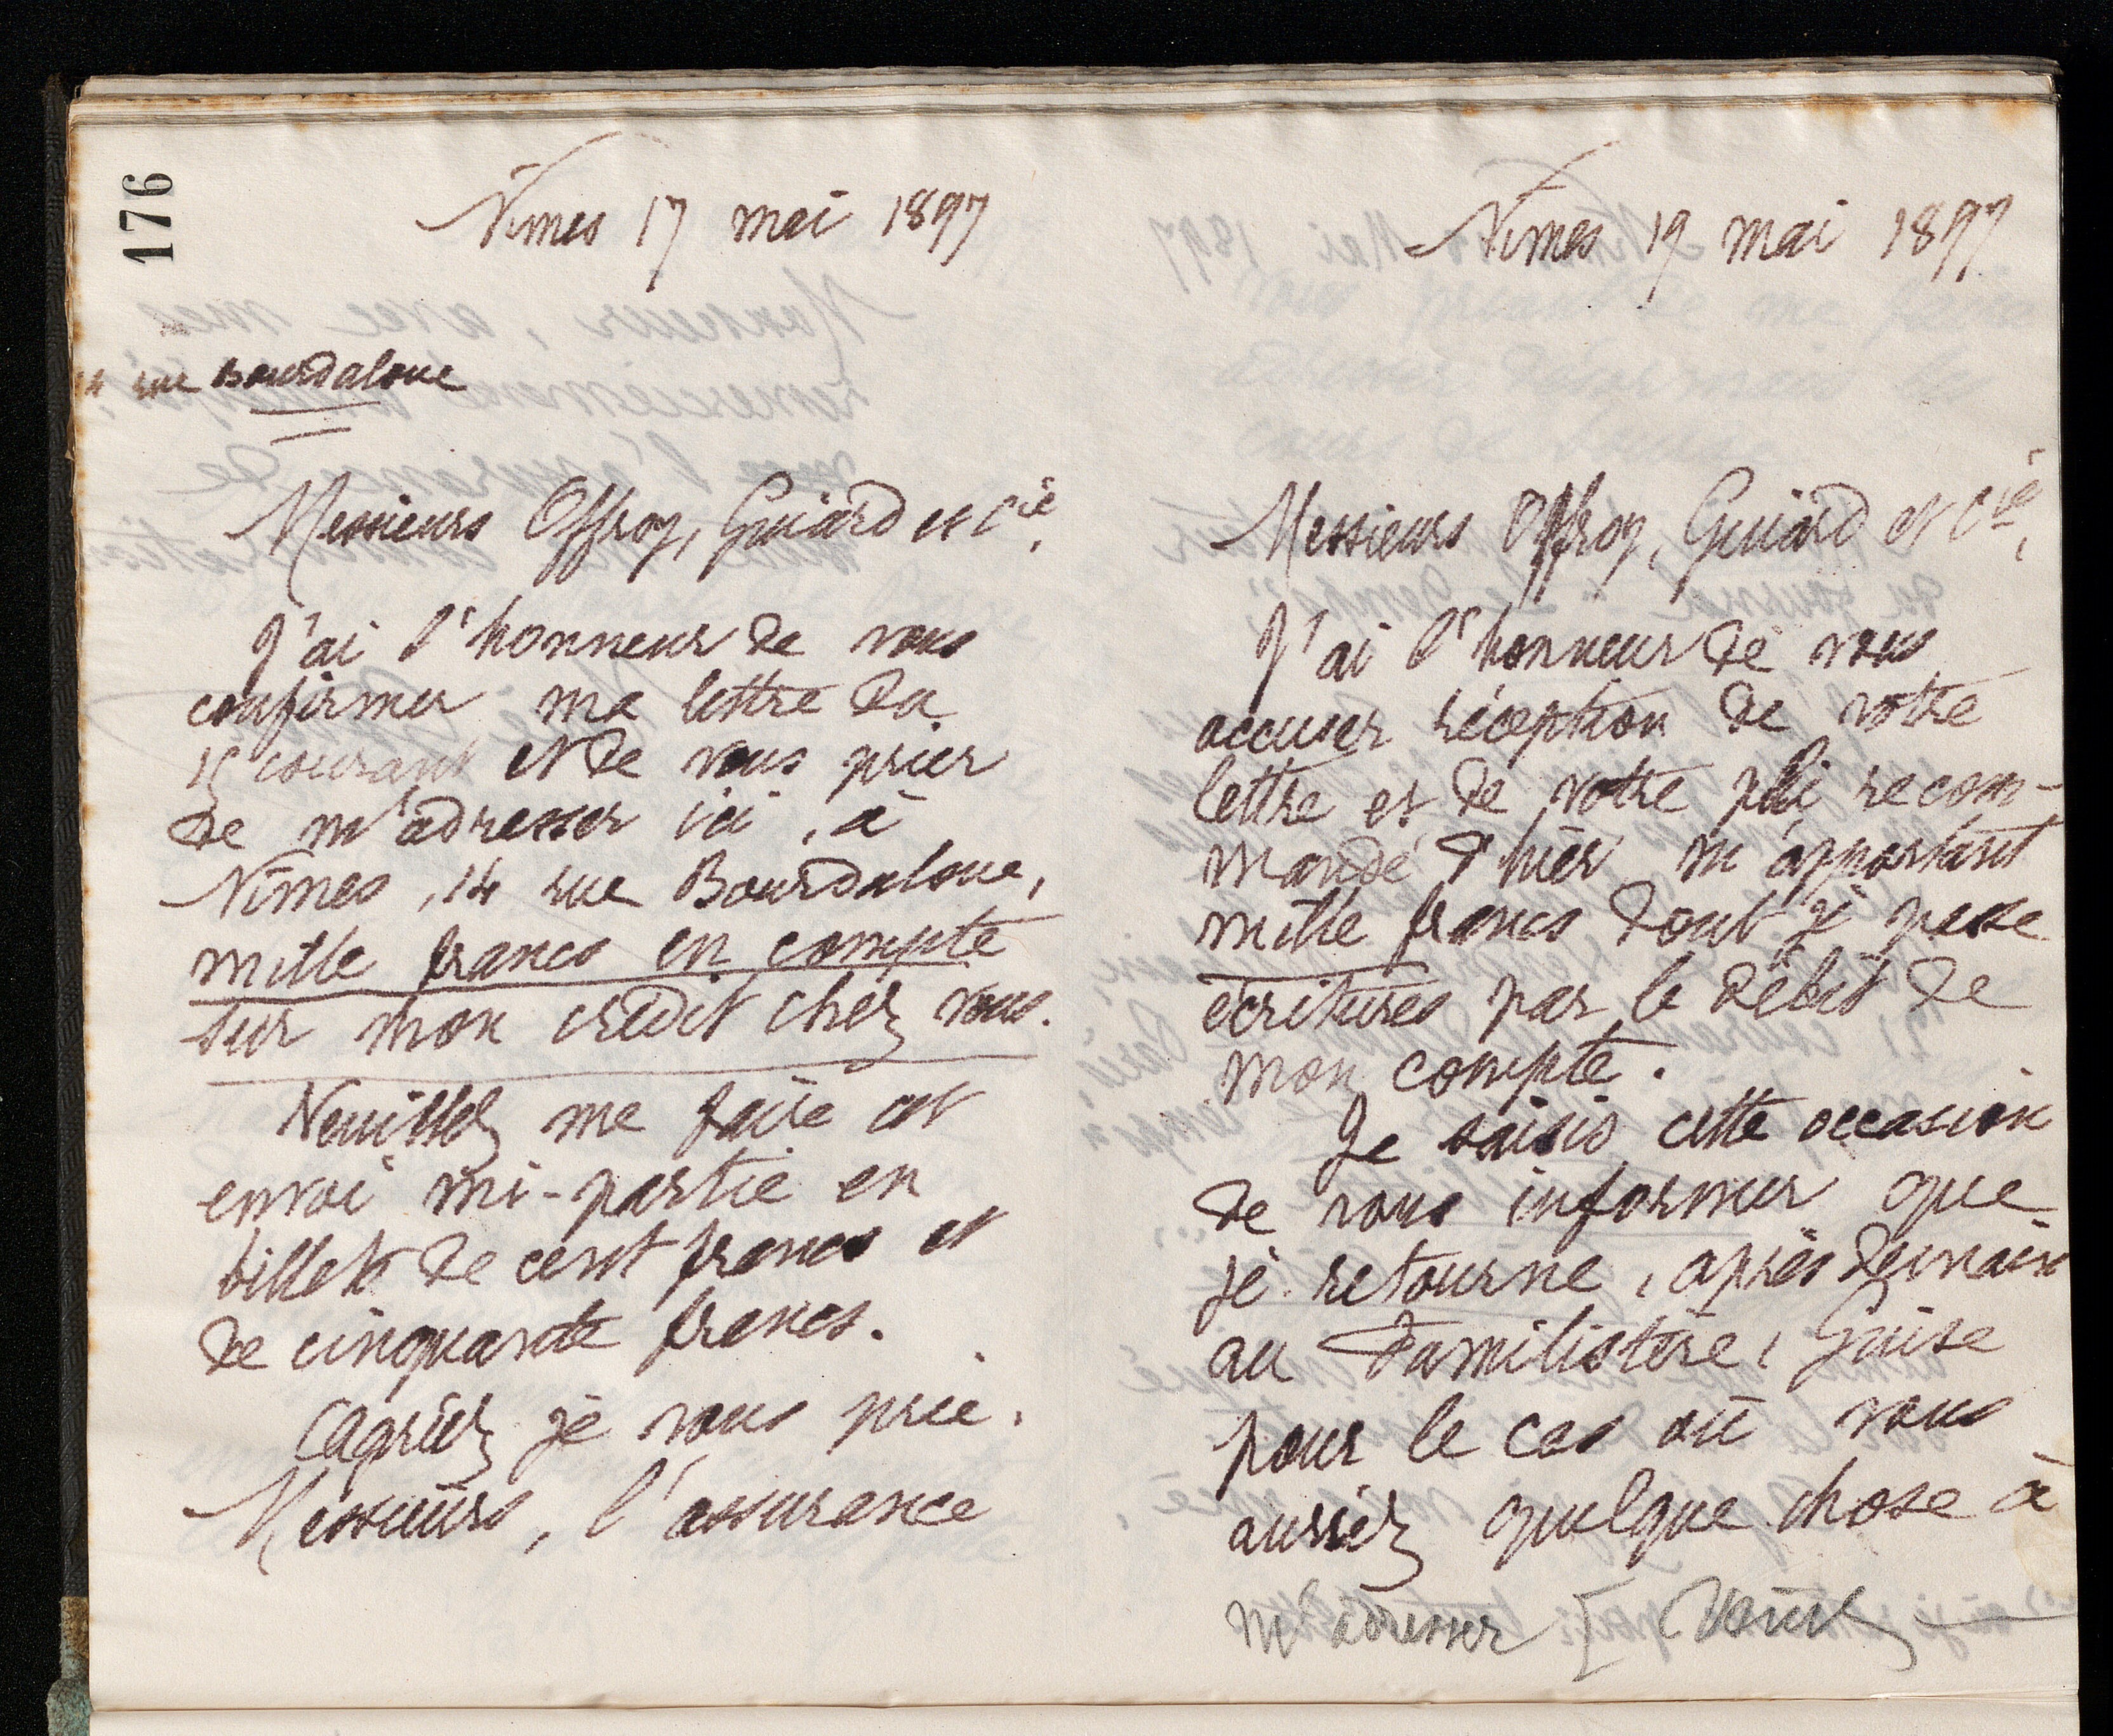 176
Nîmes 17 mai 1897
14 rue Bourdaloue
Messieurs Offroy, Guiard et Cie,
J'ai l'honneur de vous
confirmer ma lettre du
15 courant et de vous prier
de m'adresser ici, à
Nîmes, 14 rue Bourdaloue,
mille francs en compte
sur mon crédit chez vous.
Veuillez me faire cet
envoi mi-partie en
billets de cent francs et
de cinquante francs.
Agréez je vous prie,
Messieurs, l'assurance
Nîmes 19 mai 1897
Messieurs Offroy, Guiard et Cie,
J'ai l'honneur de vous
accuser réception de votre
lettre et de votre pli recom-
mandé d'hier m'apportant
mille francs dont je passe
écritures par le débit de
mon compte.
Je saisis cette occasion
de vous informer que
je retourne, après demain
au Familistère, Guise
pour le cas où vous
auriez quelque chose à
m'adresser [